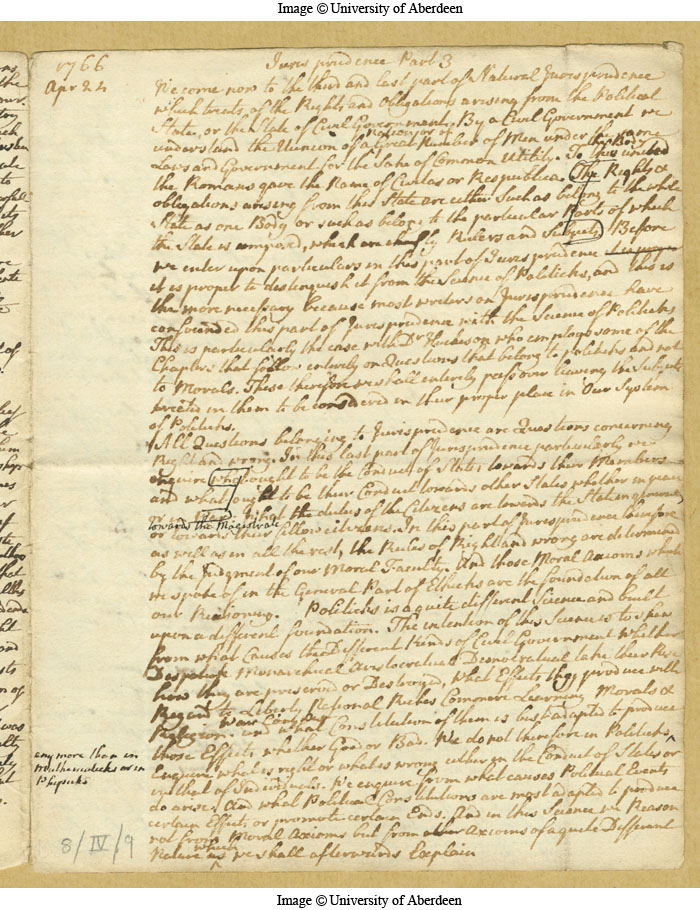 Image © University of Aberdeen
1766
Apr 24
Juris prudence Part 3
We come now to the third and last part of Natural Jurisprudence
which treats of the Rights and obligations arising from the Political
State, or the State of Civil Government. By a Civil Government we
understand the Union of a Great Number of Men under the same
Laws and Government for the Sake of Common Utility. To this united Body
the Romans gave the Name of Civitas or Respublica. The Rights &
obligations arising from this State are either such as belong to the whole
State as one Body or such as belong to the particular Parts of which
the State is composed, which are chiefly Rulers and Subjects. Before
we enter upon particulars in this part of Jurisprudence
it is proper to distinguish it from the Science of Politicks, and this is
the more necessary because most writers on Jurisprudence have
confounded this part of Jurisprudence with the Science of Politicks
This is particularly the case with Dr Hutcheson who employs some of the
Chapters that follow entirely on Questions that belong to politicks and not
to Morals. These therefore we shall entirely pass over leaving the Subjects
treated in them to be considered in their proper place in Our System
of Politicks.
All Questions belonging to Jurisprudence are Questions concerning
Right and wrong. In this last part of Jurisprudence particularly we
enquire what ought to be the Conduct of States towards their Members
and what ought to be their Conduct towards other States whether in peace
or in War. What the duties of the Citizens are towards the State in general
towards the Magistrate
or towards their fellow citizens. In this part of Jurisprudence therefore
as well as in all the rest, the Rules of Right and wrong are determined
by the Judgment of our Moral Faculty. And those Moral Axioms which
we spoke of in the General Part of Ethicks are the foundation of all
our Reasoning. Politicks is a quite different Science and built
upon a different foundation. The intention of this Science is to shew
from what Causes the Different Kinds of Civil Government whether
Despotick Monarchical Aristocratical Democratical take their Rise
how they are preserved or Destroyed, What Effects they produce with
Regard to Liberty, National Riches Commerce Learning Morals &
Religion War Conquest and what Constitution of them is best adapted to produce
those Effects whether Good or Bad. We do not therefore in Politicks
any more than in
Mathematicks or in
Physicks
Enquire what is right or what is wrong either in the Conduct of States or
in that of Individuals. We enquire from what causes Political Events
do arise, And what Political Constitutions are most adapted to produce
certain Effects or promote certain Ends. And in this Science we Reason
not from Moral Axioms but from other Axioms of a quite Different
Nature which we shall afterwards Explain
8/IV/9
Image © University of Aberdeen